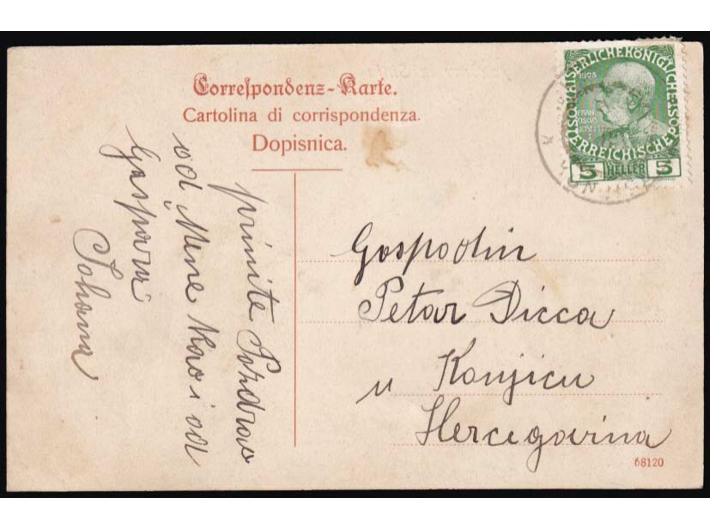 Correspondenz-Karte.
Cartolina di corrispondenza.
Dopisnica.
KAISERLICHE KÖNIGLICHE
ÖSTERREICHISCHE POST
5 HELLER 5
primite Pozdrav
od Mene kao i od
Gaspara
Johana
Gospodin
Petar Dicca
u Konjicu
Hercegovina
68120